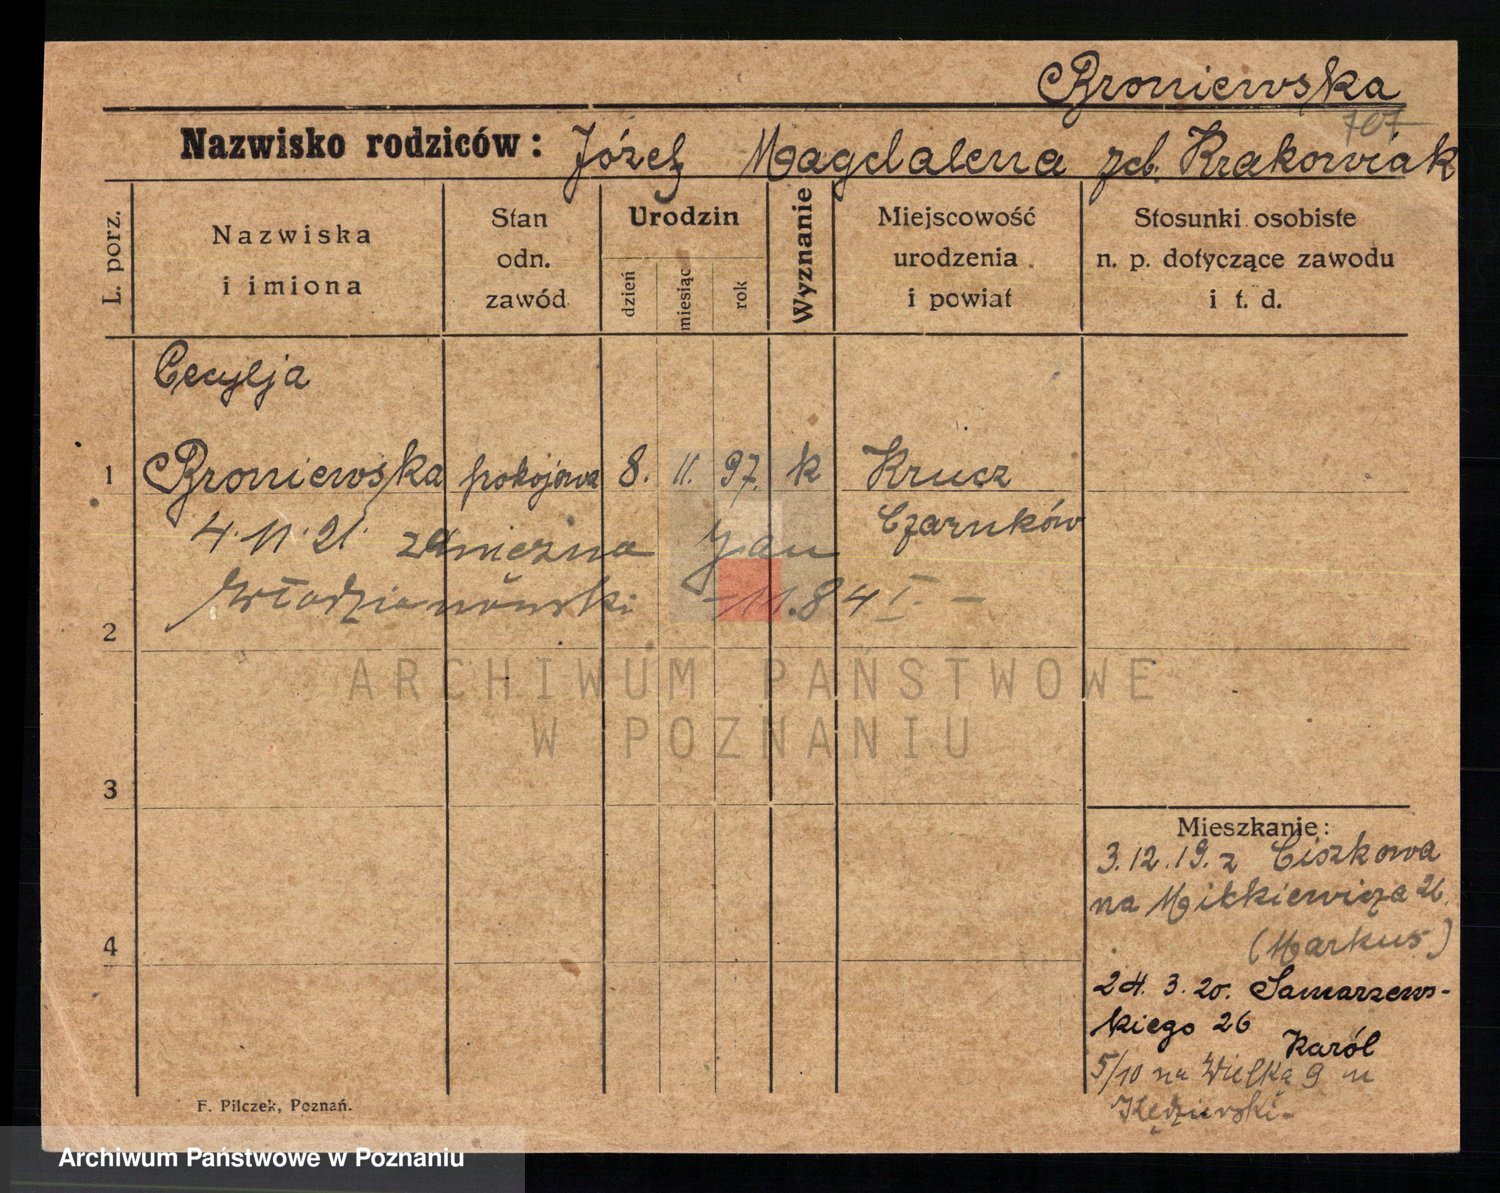 Broniewska
707
Nazwisko rodziców: Józef Magdalena zd. Krakowiak
L. porz.
Nazwiska
i imiona
Stan
odn.
zawód
Urodzin
dzień
miesiąc
rok
Wyznanie
Miejscowość
urodzenia
i powiat
Stosunki osobiste
n. p. dotyczące zawodu
i t. d.
Cecylja
1 Broniewska pokojowa 8. 11. 97. k Krucz
Czarnków
4.11.21 zamężna Jan
Włodzianowski - 11.84
2
ARCHIWUM PAŃSTWOWE
W POZNANIU
3
Mieszkanie:
3.12.19. z Ciszkowa
na Mikkiewicza 26.
4
(Markus)
24. 3. 20. Samarzews-
kiego 26
Karól
5/10 na Wielką 9 u
Kędzierski-
F. Pilczek, Poznań.
Archiwum Państwowe w Poznaniu